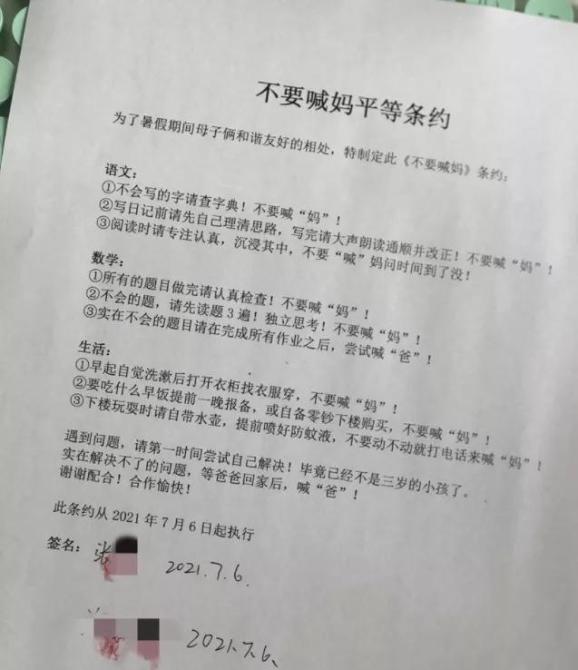 不要喊妈平等条约
为了暑假期间母子俩和谐友好的相处，特制定此《不要喊妈》条约：
语文：
①不会写的字请查字典！不要喊“妈”！
②写日记前请先自己理清思路，写完请大声朗读通顺并改正！不要喊“妈”！
③阅读时请专注认真，沉浸其中，不要“喊”妈问时间到了没！
数学：
①所有的题目做完请认真检查！不要喊“妈”！
②不会的题，请先读题3遍！独立思考！不要喊“妈”！
③实在不会的题目请在完成所有作业之后，尝试喊“爸”！
生活：
①早起自觉洗漱后打开衣柜找衣服穿，不要喊“妈”！
②要吃什么早饭提前一晚报备，或自备零钞下楼购买，不要喊“妈”！
③下楼玩耍时请自带水壶，提前喷好防蚊液，不要动不动就打电话来喊“妈”！
遇到问题，请第一时间尝试自己解决！毕竟已经不是三岁的小孩了。
实在解决不了的问题，等爸爸回家后，喊“爸”！
谢谢配合！合作愉快！
此条约从2021年7月6日起执行
签名：张 2021.7.6.
2021.7.6.